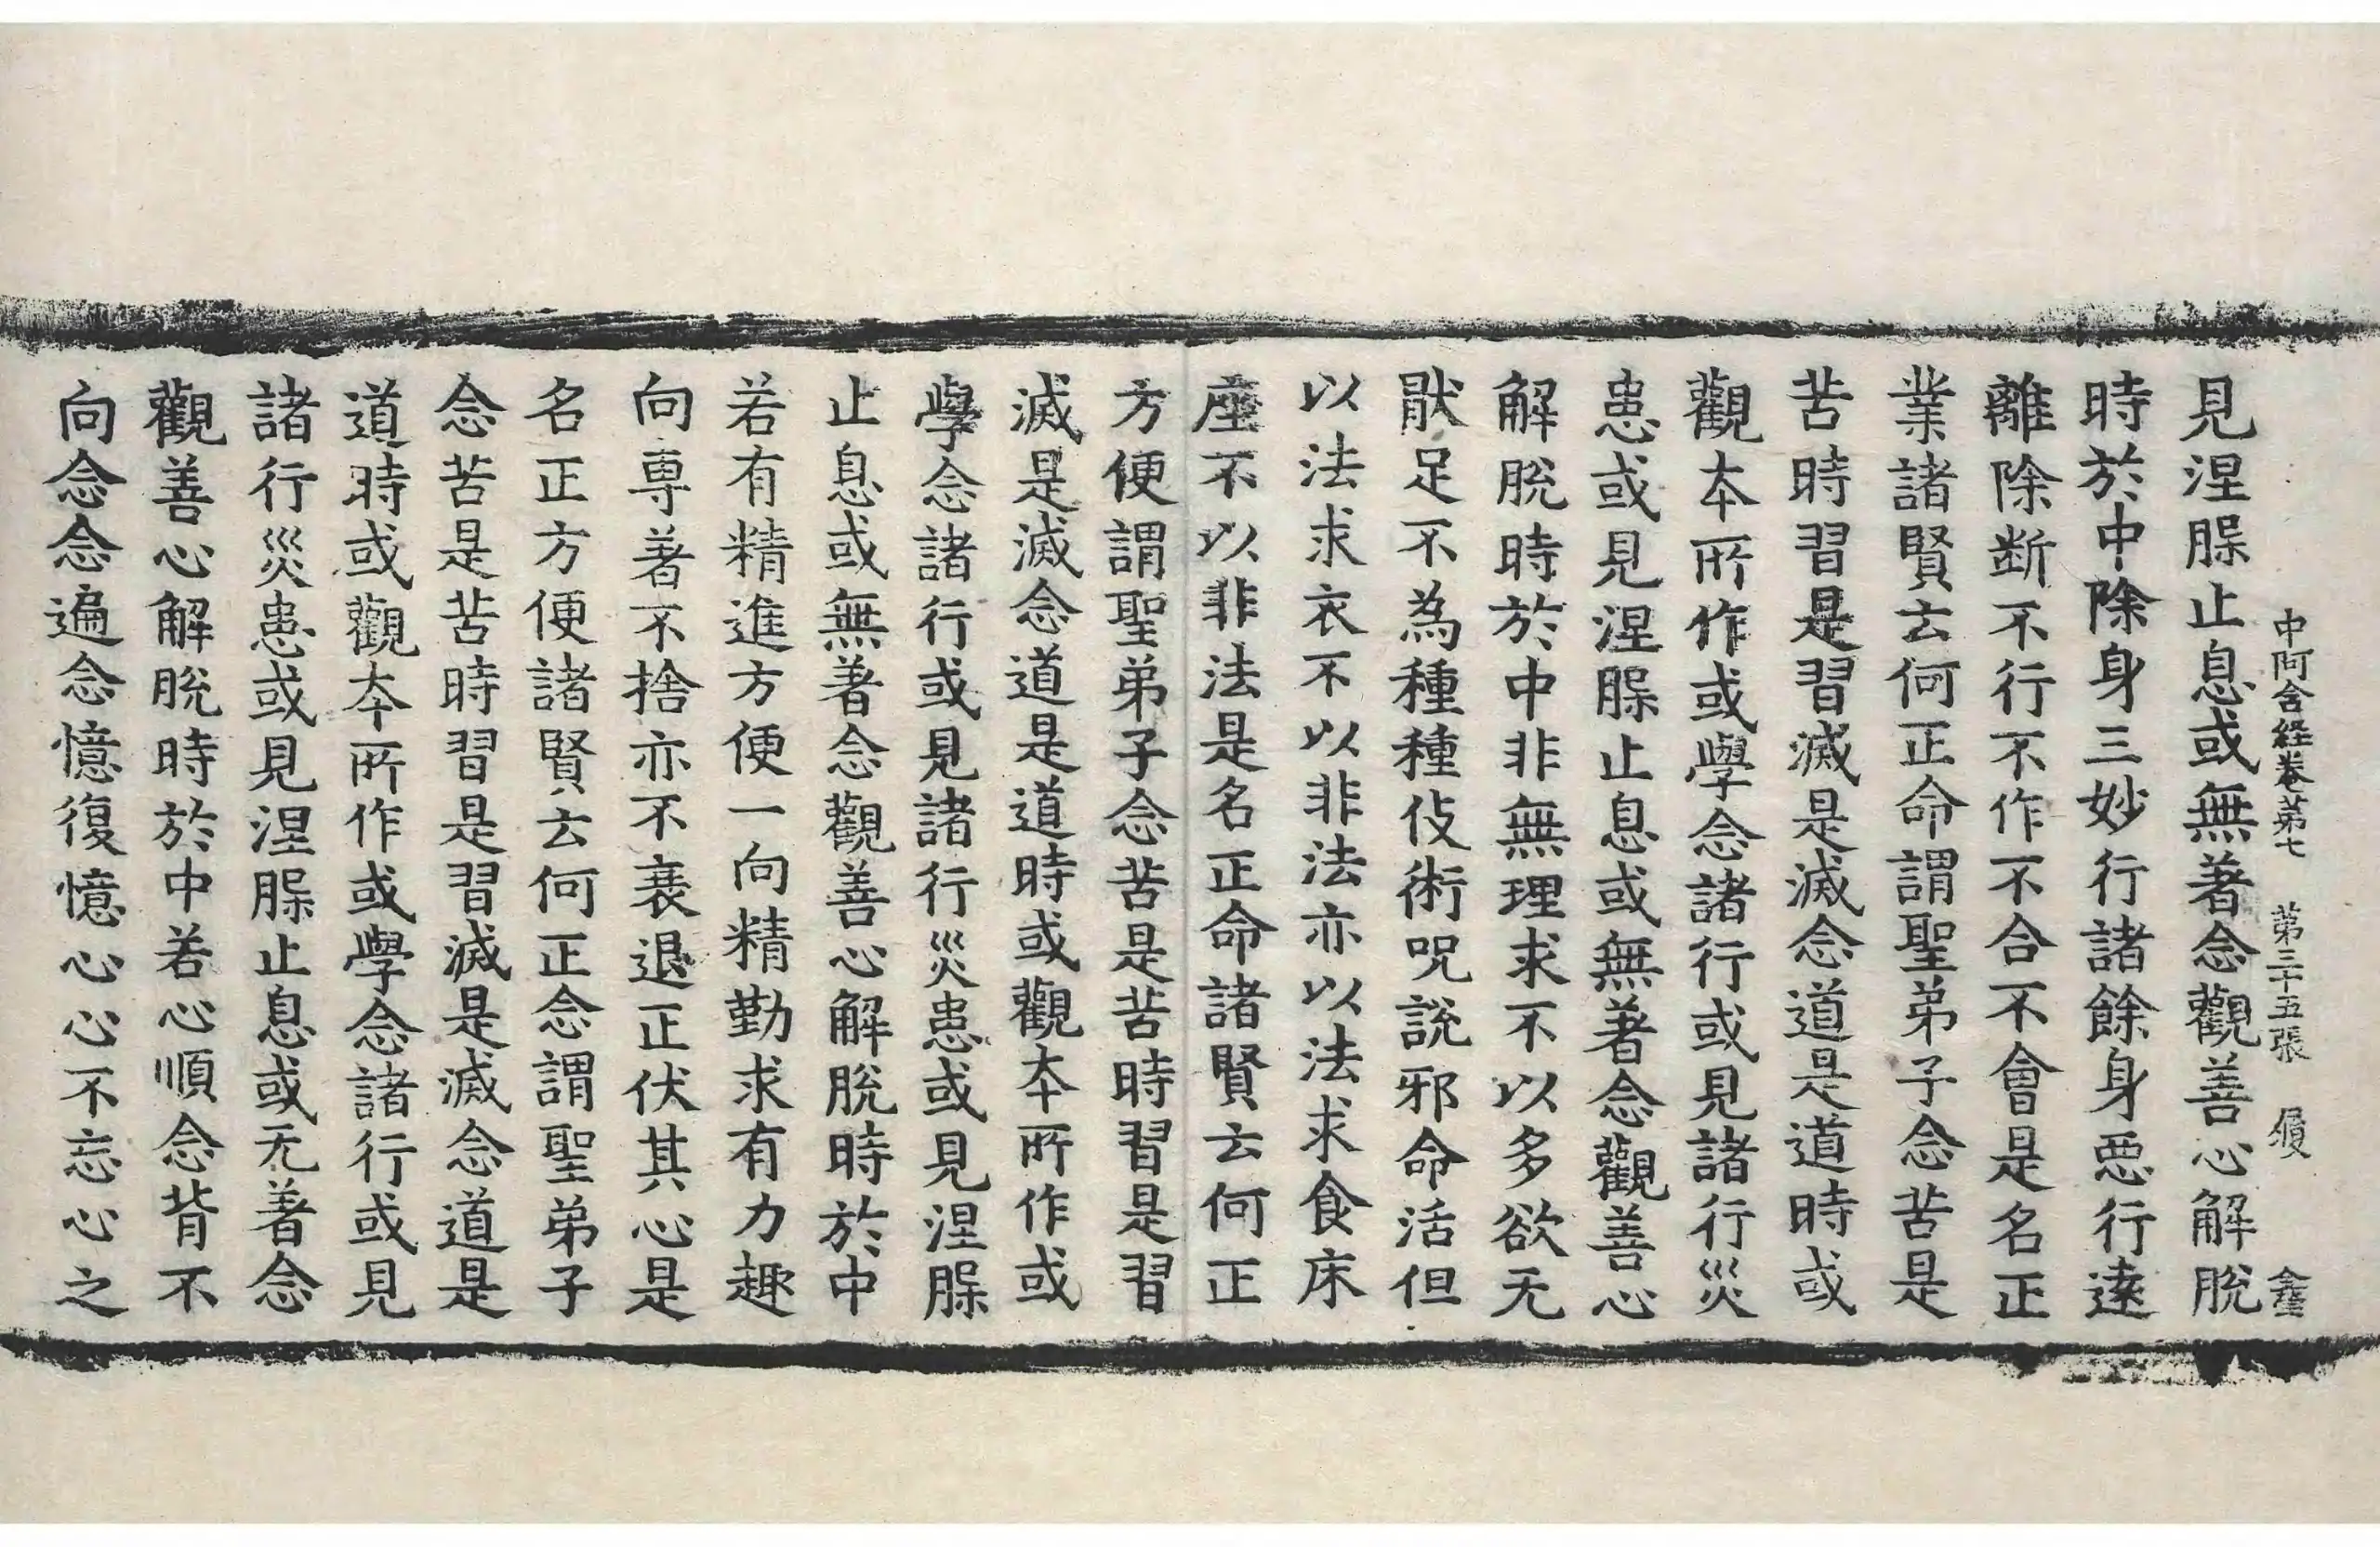 中阿含経卷苐七　苐三十五張　履
見涅槃止息或無著念觀善心解脫
時於中除身三妙行諸餘身惡行遠
離除断不行不作不合不會是名正
業諸賢云何正命謂聖弟子念苦是
苦時習是習滅是滅念道是道時或
觀夲所作或學念諸行或見諸行災
患或見涅槃止息或無著念觀善心
解脫時於中非無理求不以多欲无
猒足不為種種伎術呪說邪命活但
以法求衣不以非法亦以法求食床
座不以非法是名正命諸賢云何正
方便謂聖弟子念苦是苦時習是習
滅是滅念道是道時或觀夲所作或
學念諸行或見諸行災患或見涅槃
止息或無著念觀善心解脫時於中
若有精進方便一向精勤求有力趣
向専著不捨亦不衰退正伏其心是
名正方便諸賢云何正念謂聖弟子
念苦是苦時習是習滅是滅念道是
道時或觀夲所作或學念諸行或見
諸行災患或見涅槃止息或无著念
觀善心解脫時於中若心順念背不
向念念遍念憶復憶心心不忘心之